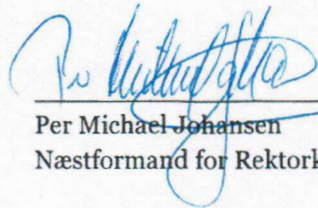 Per Michael Johansen
Næstformand for Rektork